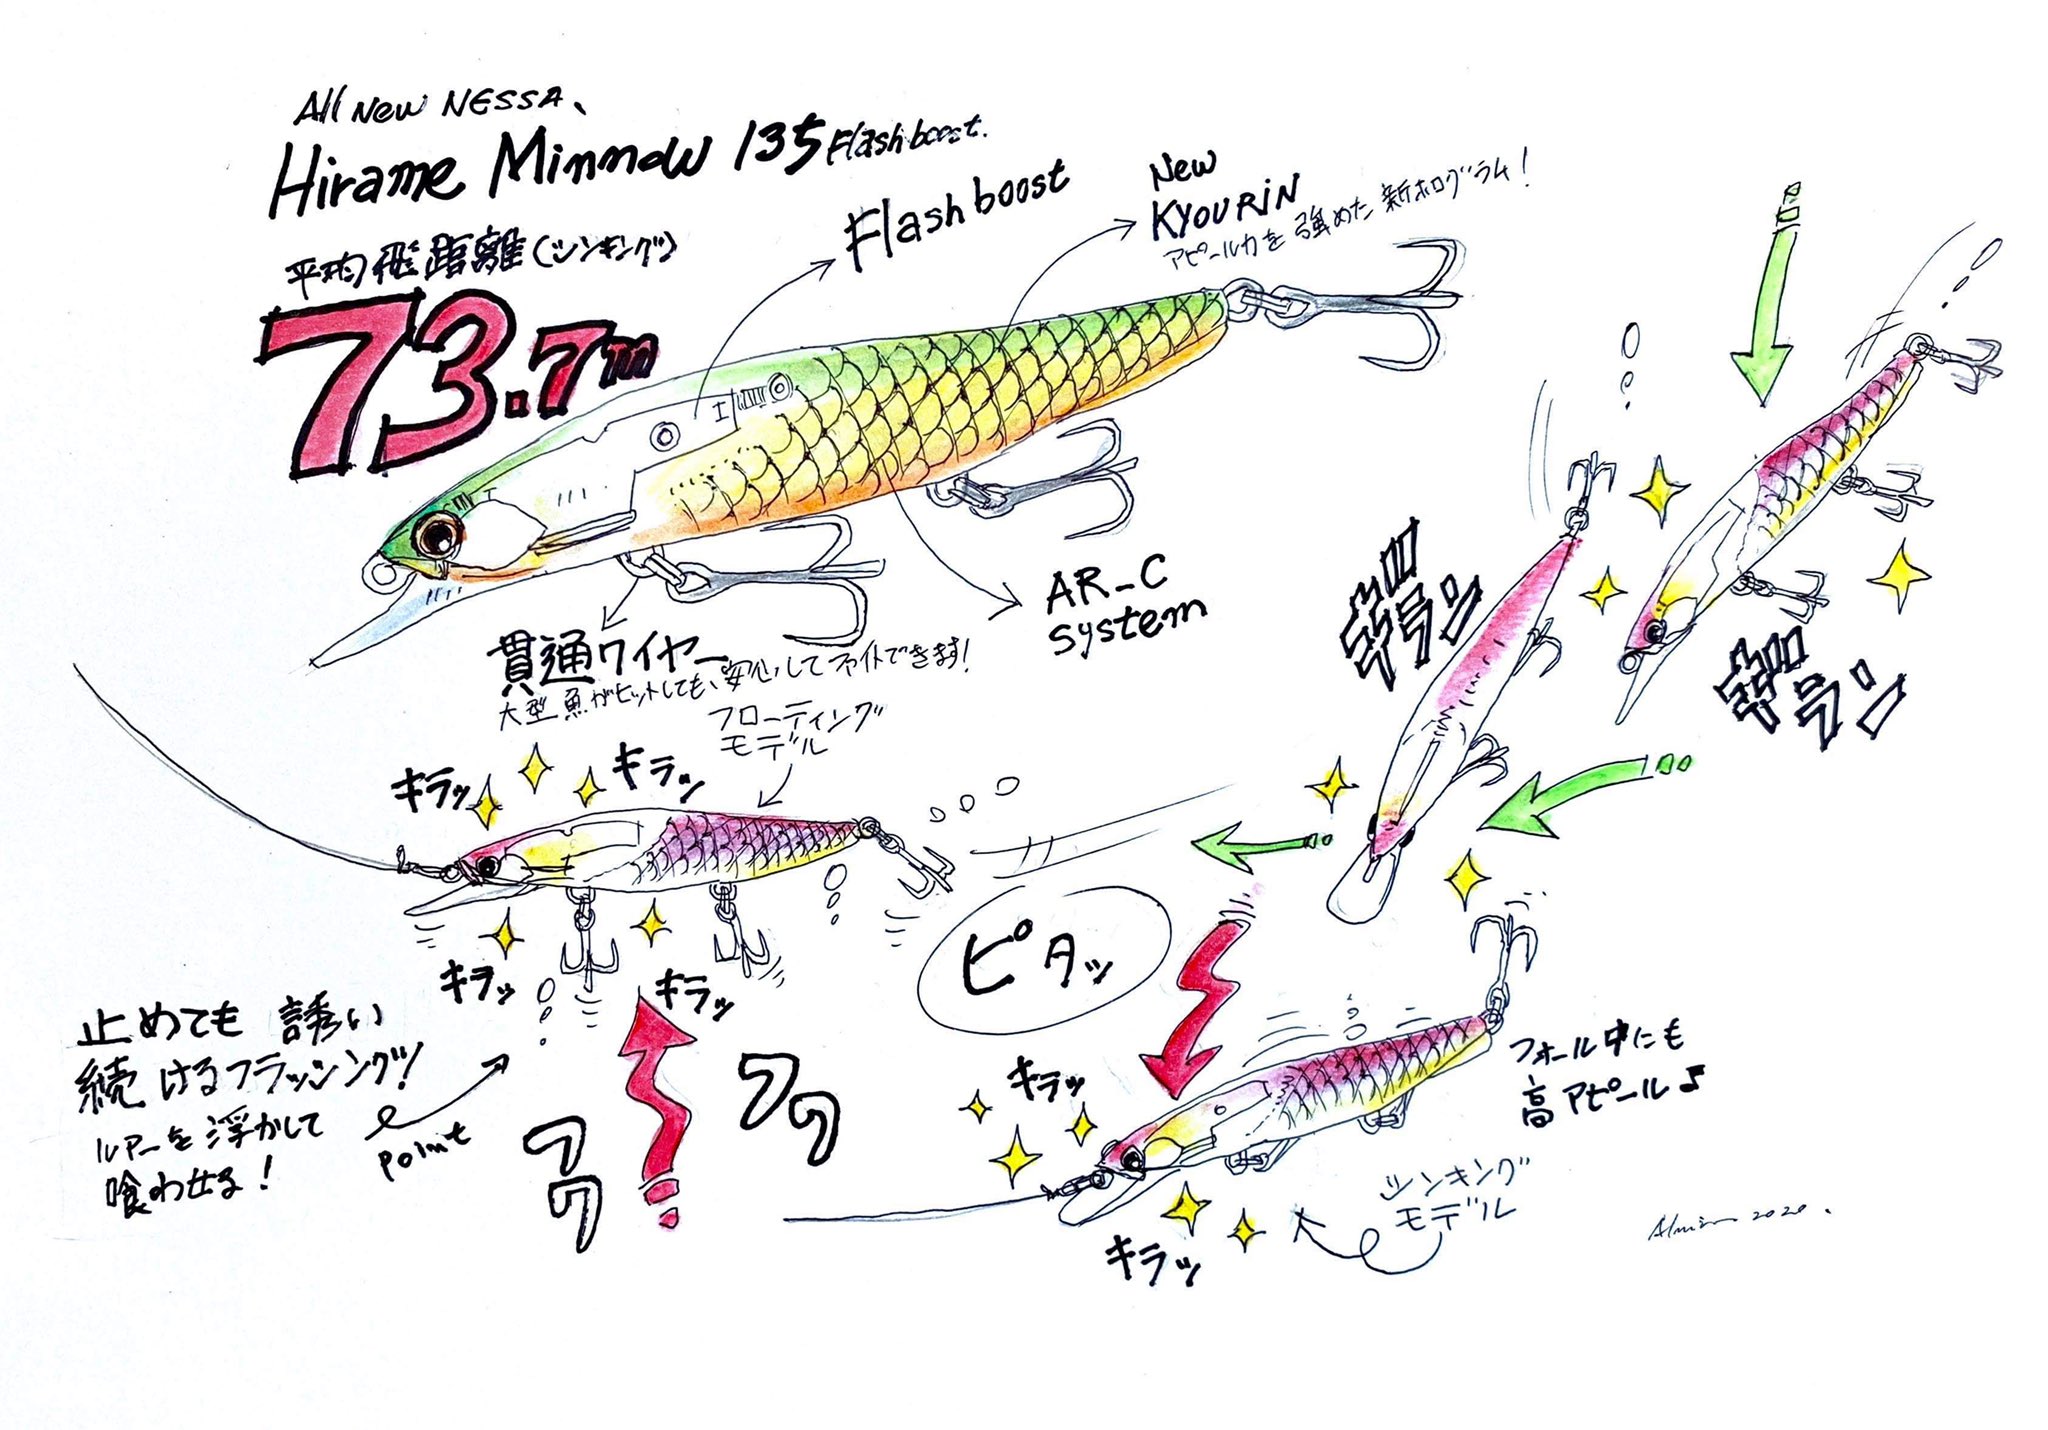 All New NESSA、
Hirame Minnow 135 Flash boost.
平均飛距離(シンキング)
73.7m
Flash boost
New
KYOURIN
アピール力を強めた新ホログラム!
AR-C
system
貫通ワイヤー
大型魚がヒットしても、安心してファイトできます!
フローティング
モデル
キラッ
キラッ
キラッ
キラッ
ギラン
ギラン
ピタッ
止めても誘い
続けるフラッシング!
ルアーを浮かして
喰わせる!
point
フワ
フワ
キラッ
キラッ
フォール中にも
高アピール♪
シンキング
モデル
2020.